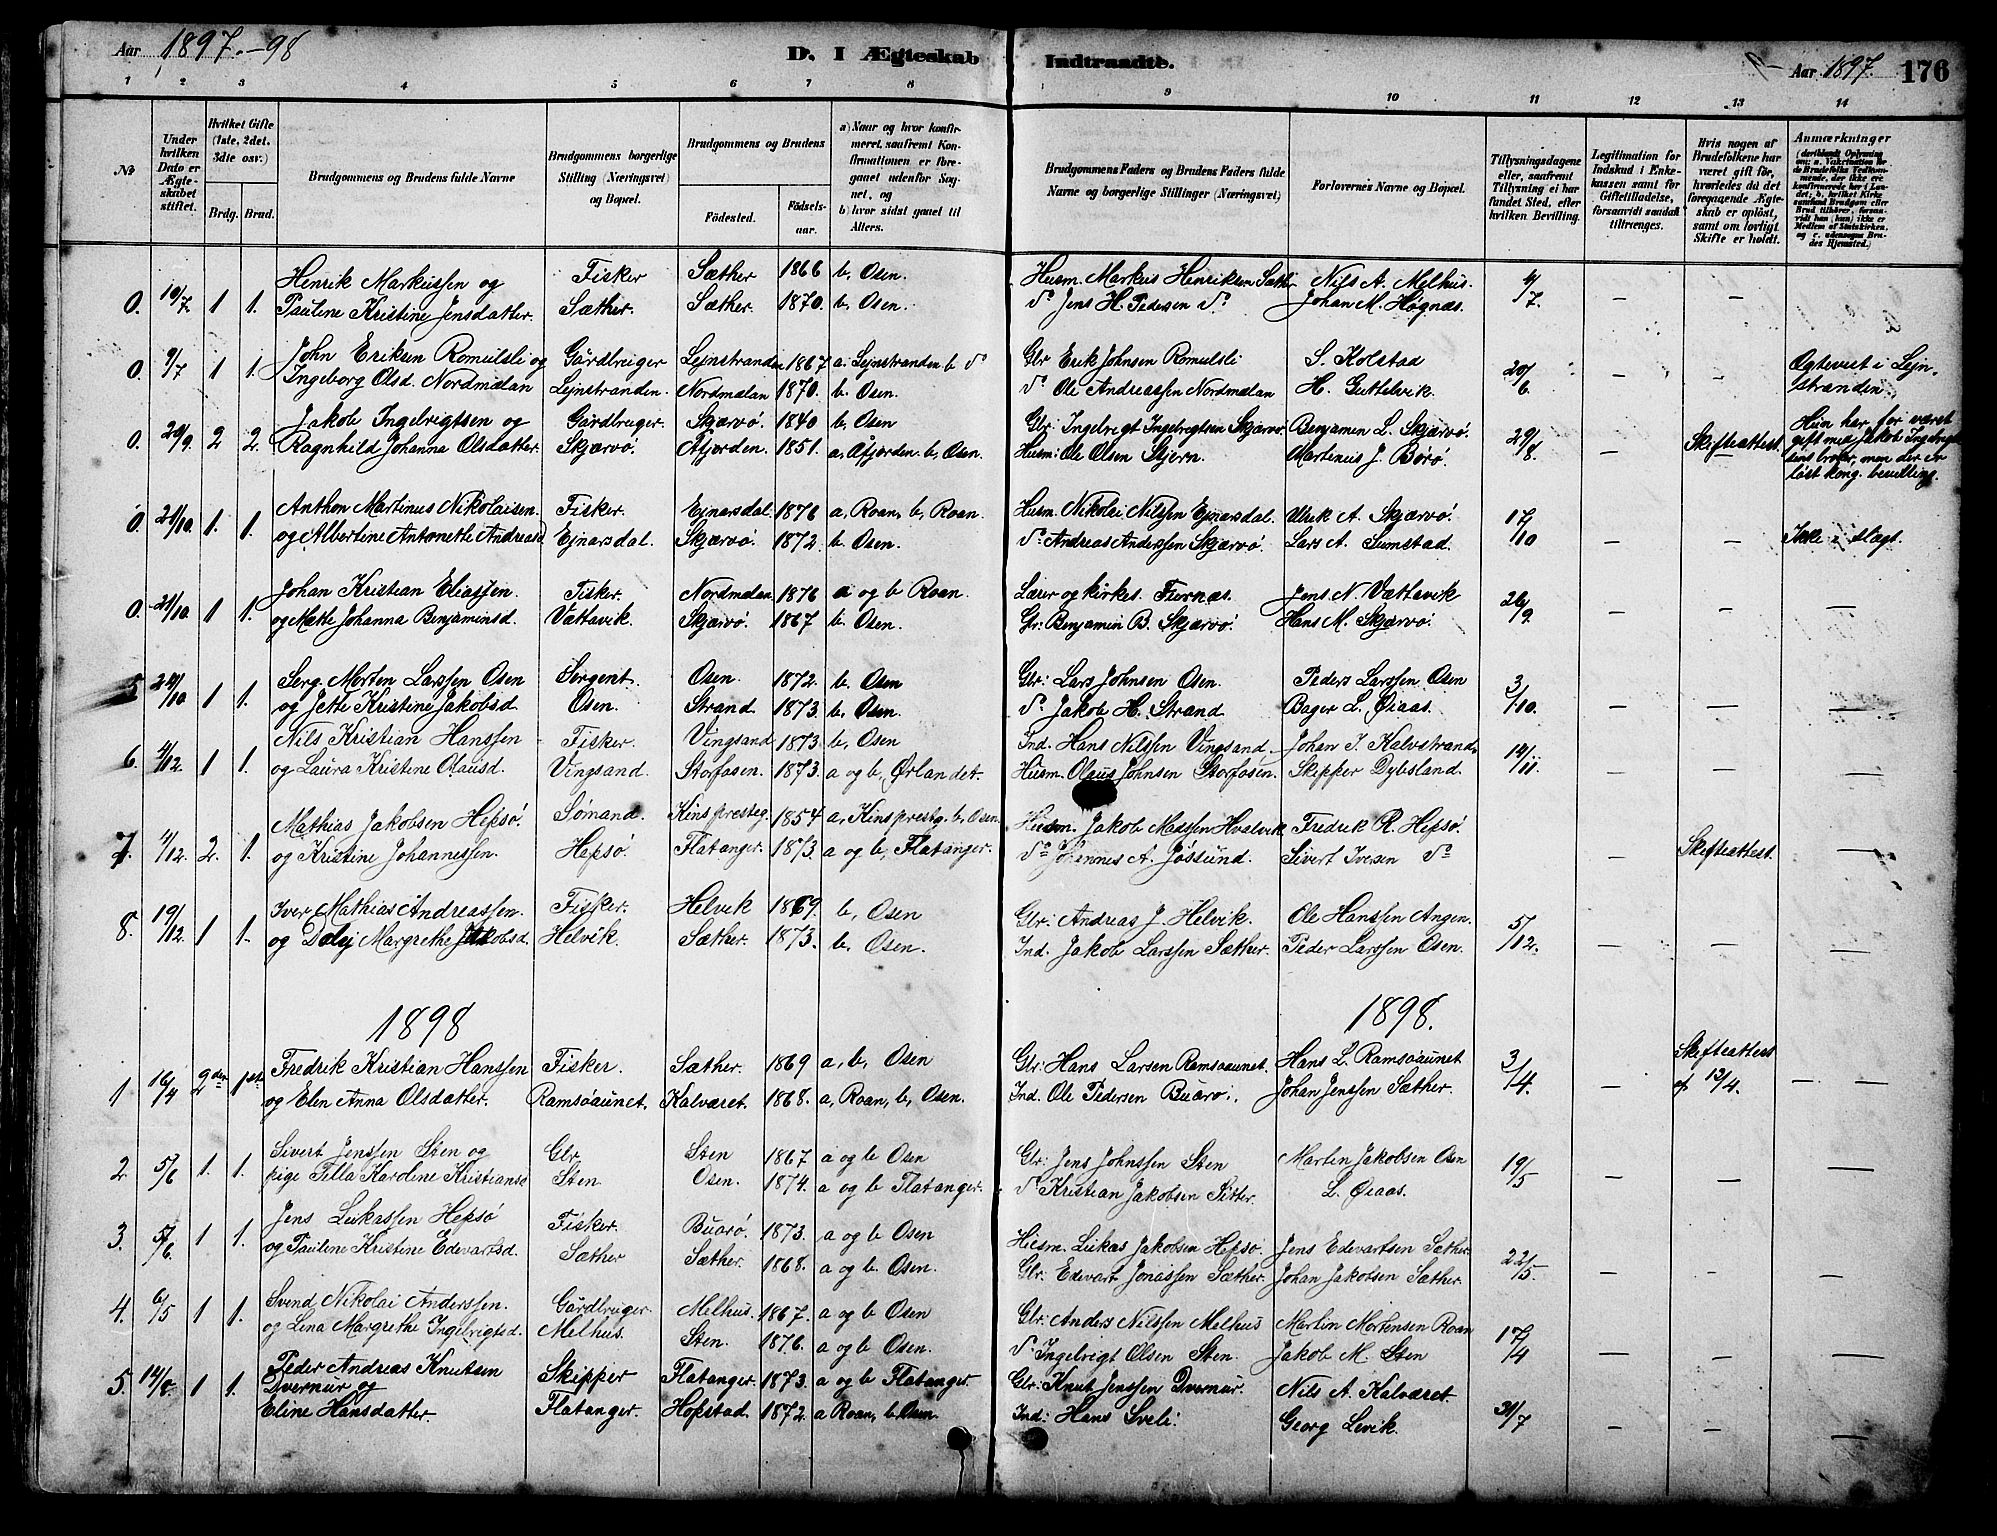 Aar 1897.-98
D. I Ægteskab
Indtraadte.
Aar 1897. 176
1 2 3 4 5 6 7 8
9 10 11 12 13 14
No
Under hvilken Dato er Ægteskabet stiftet.
Hvilket Gifte (1ste, 2det, 3die osv.)
Brdg. Brud.
Brudgommens og Brudens fulde Navne
Brudgommens borgerlige Stilling (Næringsvei) og Bopæl.
Brudgommens og Brudens
Fødested. Fødselsaar.
a) Naar og hvor konfirmeret, saafremt Konfirmationen er foregaaet udenfor Sognet, og
b) hvor sidst gaaet til Alters.
Brudgommens Faders og Brudens Faders fulde Navne og borgerlige Stillinger (Næringsvei)
Forlovernes Navne og Bopæl.
Tillysningsdagene eller, saafremt Tillysning ei har fundet Sted, efter hvilken Bevilling.
Legitimation for Indskud i Enkekassen samt for Giftetilladelse, forsaavidt saadan tiltrænges.
Hvis nogen af Brudefolkene har været gift før, hvorledes da det foregaaende Ægteskab er opløst, samt om lovligt Skifte er holdt.
Anmærkninger
0. 19/7. 1 1. Henrik Markussen og Fisker Sæther 1866 b, Osen. Husm. Markus Henriksen Sæth. Nils A. Melhus. 4/7 — — —
Pauline Kristine Jensdatter. Sæther. Sæther. 1870. b. Osen. do Jens H. Pedersen do Johan M. Høgnæs.
0. 9/7 1 1. John Eriksen Romulsli og Gårdbruger Lejnstranden 1867 a. Lejnstranden b do Gbr Erik Johnsen Romulsli S. Kolstad 20/6 — — Ægteviet i Lejnstranden.
Ingeborg Olsd. Nordmælan Lejnstranden. Nordmælan 1870. b. Osen. do Ole Andreassen Nordmælan H. Guttelvik.
0. 20/9. 2 2. Jakob Ingebrigtsen og Gårdbruger Skjærvø 1840 b, Osen Gbr: Ingebrigt Ingebrigtsen Skjærvø Benjamin L. Skjærvø. 29/8 — Skifteattest. Hun har før været gift med Jakob Ingebrigtsens broder, men der er løst kong. bevilling.
Ragnhild Johanna Olsdatter. Skjærvø. Åfjorden. 1851. a, Åfjorden. b, Osen. Husm: Ole Olsen Stjern. Martinus J. Borø.
0. 21/10. 1. 1. Anthon Martinus Nikolaisen. Fisker. Ejnarsdal. 1876 a, Roan, b, Roan. Husm. Nikolai Nilssen Ejnarsdal. Ulrik A. Skjærvø. 17/10 — — Ikke i slægt.
og Albertine Antonette Andreasd. Ejnarsdal. Skjærvø. 1872. b. Osen. do Andreas Anderssen Skjærvø. Lars A. Sumstad.
0. 21/10. 1 1. Johan Kristian Eliassen. Fisker. Nordmelan 1876 a og b Roan. Lærer og kirkes. Fjernæs. Jens N. Vættavik 26/9. — — —
og Mette Johanna Benjaminsd. Vættavik. Skjærvø. 1867 b. Osen. Gr: Benjamin B. Skjærvø. Hans M. Skjærvø.
5 24/10 1 1. Serg. Morten Larssen Osen Sergent. Osen. 1872. b. Osen Gbr: Lars Johnsen Osen. Peders Larssen Osen 3/10. — — —
og Jette Kristine Jakobsd. Osen. Strand 1873. b. Osen. do Jakob H. Strand Bager L. Øiaas.
6. 4/12. 1 1. Nils Kristian Hanssen Fisker. Vingsand 1873 b, Osen Ind. Hans Nilssen Vingsand. Johan J. Kalvstrand. 14/11. — — —
og Laura Kristine Olausd. Vingsand. Storfosen. 1873. a og b, Ørlandet. Husm. Olaus Johnsen Storfosen. Skipper Dybsland.
7. 4/12. 2. 1. Mathias Jakobsen Hepsø. Sømand. Kins presteg. 1854 a, Kins prestg. b, Osen. Husm. Jakob Massen Hvalvik Fredrik R. Hepsø. — Skifteattest. —
og Kristine Johannessen. Hepsø. Flatanger. 1873. a og b, Flatanger. do Johannes A. Jøssund. Sivert Iversen do
8. 19/12. 1 1. Iver Mathias Andreassen. Fisker. Helvik 1869. b, Osen Gbr: Andreas J. Helvik. Ole Hanssen Angen 5/12. — — —
og Dolej Margrethe Jakobsd. Helvik. Sæther. 1873. b. Osen. Ind. Jakob Larssen Sæther. Peder Larssen Osen.
1898 1898.
1 16/4 2den 1ste Fredrik Kristian Hanssen Fisker. Sæther. 1869 a, b, Osen Gbr: Hans Larsen Ramsøaunet. Hans L. Ramsøaunet 3/4. — Skifteattest af 13/4. —
og Elen Anna Olsdatter. Ramsøaunet. Kalværet. 1868. a, Roan, b, Osen. Ind. Ole Pedersen Buarø. Johan Jenssen Sæther.
2. 5/6 1. 1. Sivert Jenssen Sten og Gbr Sten 1867 a og b Osen Gbr: Jens Johnssen Sten Martin Jakobsen Osen 19/5 — — —
pige Tilla Karoline Kristians Sten Osen. 1874. a og b Flatanger. do Kristian Jakobsen Sitter. L. Øiaas.
3. 5/6 1 1. Jens Lukassen Hepsø Fisker. Buarø. 1873. a og b Osen Husm. Lukas Jakobsen Hepsø. Jens Edevartsen Sæther. 22/5. — — —
og Pauline Kristine Edevartsd. Sæther Sæther. 1868. a og b. Osen. Gbr. Edevart Jonassen Sæther. Johan Jakobsen Sæther.
4. 6/5 1 1. Svend Nikolai Anderssen. Gårdbruger. Melhus. 1867. a og b Osen Gbr: Anders Nilssen Melhus Martin Mortensen Roan 17/4 — — —
og Lina Margrethe Ingebrigtsd. Melhus. Sten. 1876. a og b. Osen. do Ingebrigt Olsen Sten. Jakob M. Sten
5. 14/8. 1 1. Peder Andreas Knutsen Skipper Flatanger. 1873. a og b Flatanger. Gbr: Knut Jenssen Dvernur. Nils A. Kalværet. 31/7 — — —
Dvernur og
Eline Hansdatter. Flatanger. Hopstad. 1872. a Roan, b, Osen. Ind: Hans Sveli. Georg Levik.